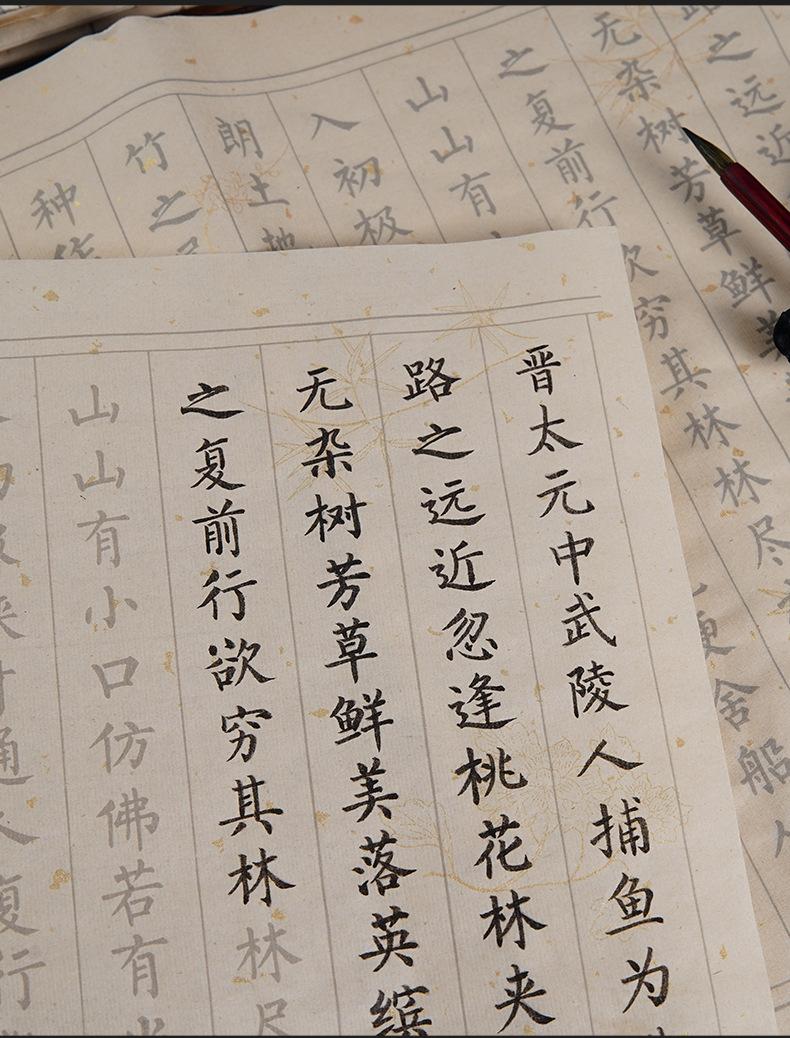 晋太元中武陵人捕鱼为
路之远近忽逢桃花林夹
无杂树芳草鲜美落英缤
之复前行欲穷其林林尽
山山有小口仿佛若有
通
复行
之远近
无杂树芳草鲜美
之复前行欲穷其林林尽
山山有
便舍船
入初极
朗土地
竹之
种